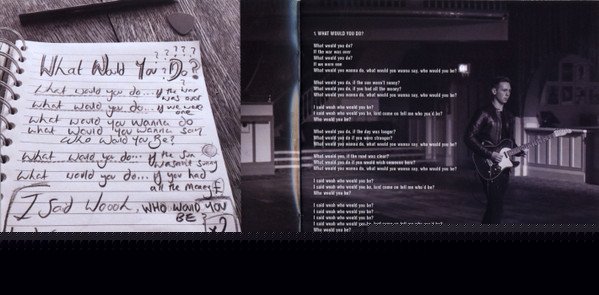 ? ? ? ?
What Would You Do?
What would you do... if the war
was over
What would you do... if we were
one
What would you wanna do
what would you wanna say
who would you be?
What would you do... if the sun
wasn't sunny
What would you do... if you had
all the money £
I Said Woooh, WHO WOULD YOU
BE?
x2
1. WHAT WOULD YOU DO?
What would you do?
If the war was over
What would you do?
If we were one
What would you wanna do, what would you wanna say, who would you be?
What would you do, if the sun wasn't sunny?
What would you do, if you had all the money?
What would you wanna do, what would you wanna say, who would you be?
I said woah who would you be?
I said woah who would you be, just come on tell me who'd you be?
Who would you be?
What would you do, if the day was longer?
What would you do if you were stronger?
What would you wanna do, what would you wanna say, who would you be?
What would you, if the road was clear?
What would you do if you would wish someone here?
What would you wanna do, what would you wanna say, who would you be?
I said woah who would you be?
I said woah who would you be, just come on tell me who'd be?
Who would you be?
I said woah who would you be?
I said woah who would you be?
I said woah who would you be?
I said woah who would you be, just come on tell me who'd you be?
Who would you be?